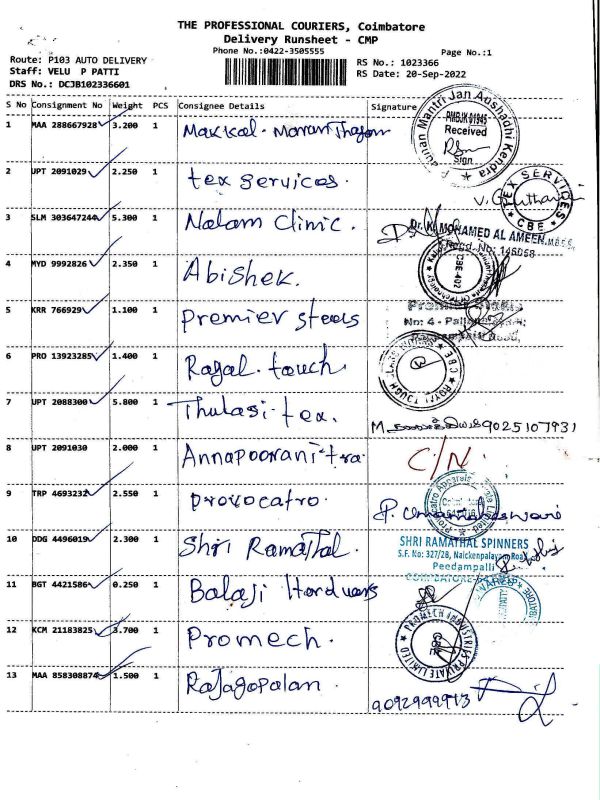 THE PROFESSIONAL COURIERS, Coimbatore
Delivery Runsheet - CMP
Phone No.:0422-3505555
Page No.:1
Route: P103 AUTO DELIVERY
RS No.: 1023366
Staff: VELU P PATTI
RS Date: 20-Sep-2022
DRS No.: DCJB102336601
S No Consignment No Weight PCS Consignee Details Signature
1 MAA 288667928 3.200 1 Makkal
PMBJK 01945
Received
Sign
2 UPT 2091029 2.250 1 tex services.
TEX SERVICES
CBE
3 SLM 303647244 5.300 1 Nalam Clinic.
Dr. K. MOHAMED AL AMEEN, M.B.B.S.
Regd. No: 146058
4 MYD 9992826 2.350 1 Abishek.
CBE-402
5 KRR 766929 1.100 1 Premier steels
Premier Steels
No: 4 -
6 PRO 13923285 1.400 1 Royal touch
CBE
7 UPT 2088300 5.800 1 Thulasi tex.
M 9025107931
8 UPT 2091030 2.000 1 Annapoorani tra
C/N.
9 TRP 4693232 2.550 1 provocatro.
P. Umamaheswari
10 DDG 4496019 2.300 1 Shri Ramathal.
SHRI RAMATHAL SPINNERS
S.F. No: 327/2B, Naickenpalayam Road
Peedampalli
COIMBATORE
11 BGT 4421586 0.250 1 Balaji Hardwars
12 KCM 21183825 3.700 1 Promech.
PROMECH INDUSTRIES PRIVATE LIMITED
13 MAA 858308874 1.500 1 Rajagopalan
9092999913